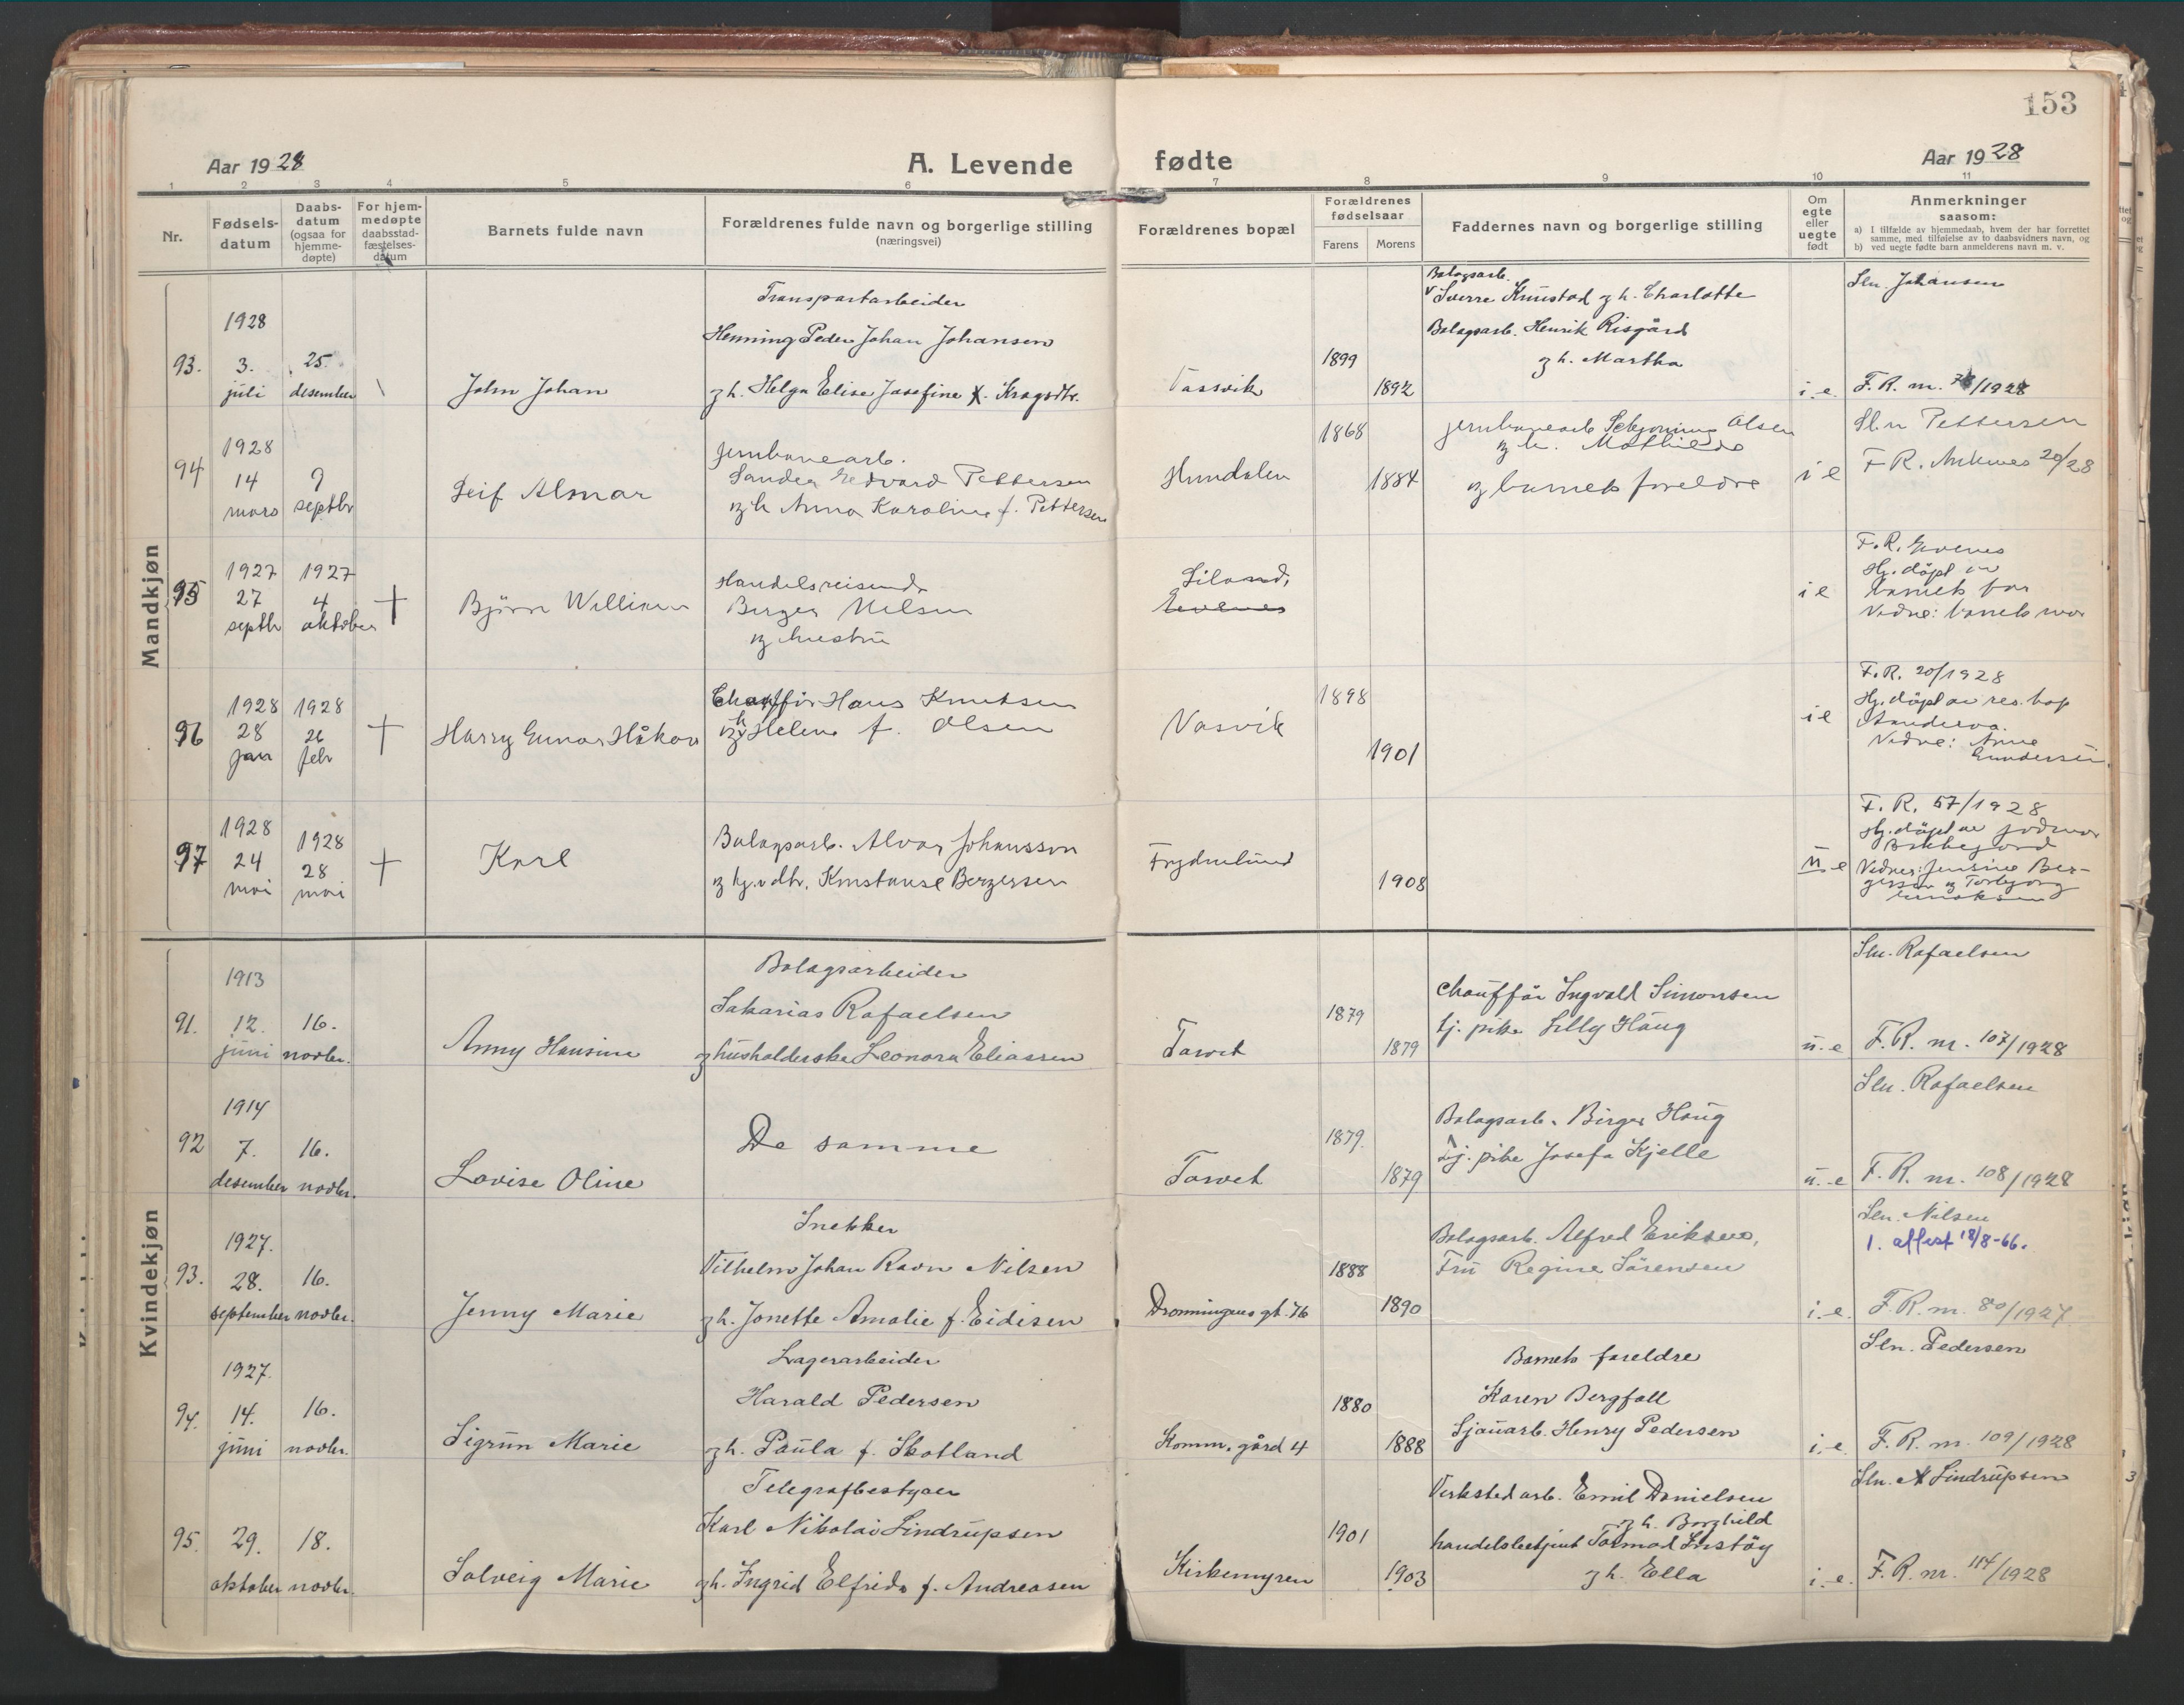 153
Aar 1928
A. Levende fødte
Aar 1928
1 2 3 4 5 6 7 8 9 10 11
Nr.
Fødsels-
datum
Daabs-
datum
(ogsaa for
hjemme-
døpte)
For hjem-
medøpte
daabsstad-
fæstelses-
datum
Barnets fulde navn
Forældrenes fulde navn og borgerlige stilling
(næringsvei)
Forældrenes bopæl
Forældrenes
fødselsaar
Farens Morens
Faddernes navn og borgerlige stilling
Om
egte
eller
uegte
født
Anmerkninger
saasom:
a) I tilfælde av hjemmedaab, hvem der har forrettet
samme, med tilføielse av to daabsvidners navn, og
b) ved uegte fødte barn anmelderens navn m. v.
Mandkjøn
93.
1928
3.
juli
25.
desember
John Johan
Transportarbeider
Henning Peder Johan Johansen
g h. Helga Elise Josefine f. Kragsdtr.
Vassvik
1899
1892
Bolagsarb.
Sverre Knustad g h. Charlotte
Bolagsarb. Henrik Risgård
g h. Martha
i. e.
Sln. Johansen
F. R. nr. /1928
94
1928
14
mars
9
septbr
Leif Almar
Jernbanearb.
Sander Edvard Pettersen
og h Anna Karoline f. Pettersen
Hundalen
1868
1884
Jernbanearb Olsen
og h. Mathilde
og barnets foreldre
i e
Sln Pettersen
F R. Ankenes 20/28
95
1927
27
septbr
1927
4
oktober
†
Bjørn William
Handelsreisende
Birger Nilsen
og hustru
Liland,
Evenes
i e
F. R. Evenes
Hj. døpt av
barnets far
Vidne: barnets mor
96
1928
28
jan
1928
26
febr
†
Harry Gunnar Håkon
Chauffør Hans Knutsen
og h Helene f. Olsen
Vasvik
1898
1901
i e
F. R. 20/1928
Hj. døpt av res. kap
Vidne: Anne
Gundersen.
97
1928
24
mai
1928
28
mai
†
Karl
Bolagsarb. Alvar Johansson
og hj.v.dtr. Konstanse Bergersen
Frydenlund
1908
u e
F. R. 57/1928
Hj. døpt av jordmor
Bakkejord
Vidner: Jensine Ber-
gersen og Torbjørg
Kvindekjøn
91.
1913
12.
juni
16.
novbr.
Anny Hansine
Bolagsarbeider
Sakarias Rafaelsen
g husholderske Leonora Eliassen
Taraet
1879
1879
Chauffør Ingvald Simonsen
tj. pike Lilly Haug
u. e
Sln. Rafaelsen
F. R. nr. 107/1928
92
1914
7.
desember
16.
novbr.
Lovise Oline
De samme
Taraet
1879.
1879
Bolagsarb. Birger Haug
Tj. pike Josefa Kjelle
u. e
Sln. Rafaelsen
F. R. nr. 108/1928
93.
1927.
28.
september
16.
novbr.
Jenny Marie
Snekker
Vilhelm Johan Ravn Nilsen
g h. Jonette Amalie f. Eidisen
Dronningens gt. 76
1888
1890
Bolagsarb. Alfred Eriksen,
Fru Regine Sørensen
i. e.
Sln. Nilsen
1. attest 18/8-66.
F. R. nr. 80/1927
94.
1927.
14.
juni
16.
novbr.
Sigrun Marie
Lagerarbeider
Harald Pedersen
g h. Paula f. Skotland
Komm. gård 4
1880
1888
Barnets foreldre
Karen Bergfall
Sjauarb. Henry Pedersen
i. e.
Sln. Pedersen
F. R. nr. 109/1928
95.
29.
oktober
18.
novbr.
Solveig Marie
Telegrafbestyrer
Karl Nikolai Lindrupsen
g h. Ingrid Elfrida f. Andreasen
Kirkemyren
1901
1903
Verksted arb. Emil Danielsen
g h. Borghild
handelsbetjent Tormod Instøy
g h. Ella
i. e.
Sln. Lindrupsen
F. R. nr. 114/1928